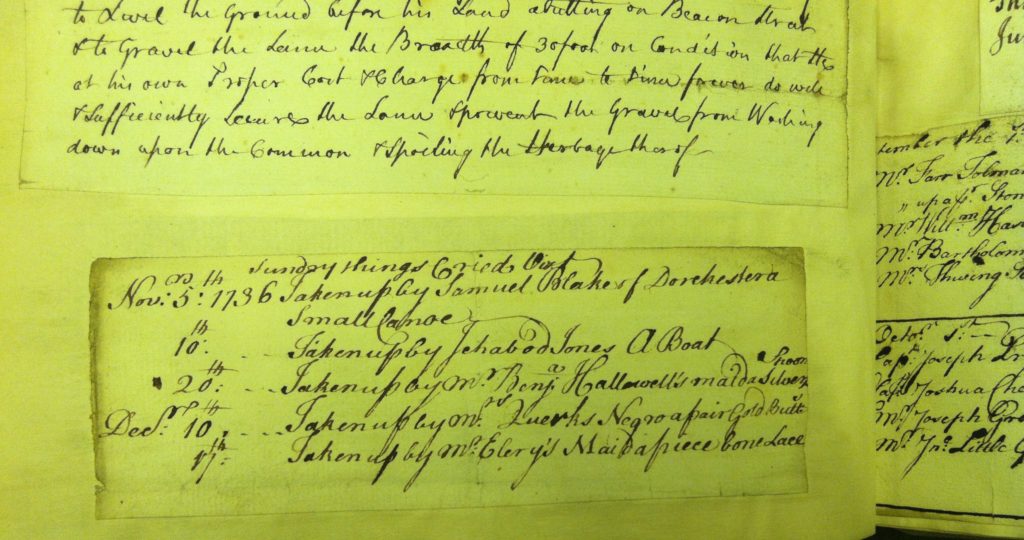 to Level the Ground before his Land abutting on Beacon Street
& to Gravel the Same the Breadth of 30 foot on Condition that He
at his own Proper Cost & Charge from time to time forever do well
& Sufficiently Secure the Same & prevent the Gravel from Washing
down upon the Common & Spoiling the Herbage therof
Sundry things Cried Vizt
Novr. 5th. 1736 Taken up by Samuel Blake of Dorchester a
Small Canoe
10th. .. Taken up by Ichabod Jones A Boat
20th. .. Taken up by Mr Benja Hallowell's maid a Silver Spoon
Decr. 10th. .. Taken up by Mrs Quirks Negro a pair Gold Butts
17th. Taken up by Mr Elery's Maid a piece bone Lace
tember the
Mr Farr Tolman
Mr Willm
Mr Bartholom
Mr Thwing
Octor
Capt Joseph
Capt Joshua
Mr Joseph Gr
Mr Jno Little